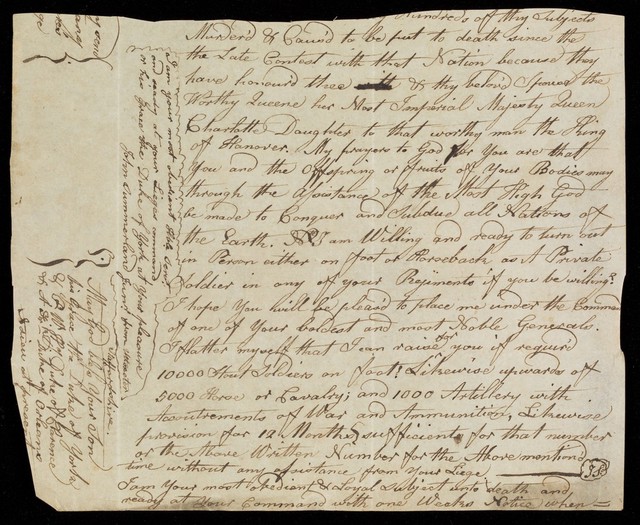 Hundreds off thy Subjects
Murder'd & Caus'd to be put to death since the
the Late Contest with that Nation because they
have honour'd thee & thy belov'd Spouse the
Worthy Queene her Most Imperial Majesty Queen
Charlotte Daughter to that worthy man the King
of Hanover. My prayers to God for You are that
You and the Offspring or fruits off Your Bodies may
through the Assistance off the Most High God
be made to Conquer and Subdue all Nations of
the Earth. I am Willing and ready to turn out
in Person either on foot or Horseback as A Private
Soldier in any off your Regiments if you be willing
I hope You will be pleas'd to place me under the Command
off one of Your boldest and most Noble Generals.
I flatter myself that I can raise for you if requir'd
10000 Stout Soldiers on foot! Likewise upwards off
5000 Horse or Cavalry; and 1000 Artillery with
Accutrements of War and Ammunition, Likewise
provision for 12 Months, sufficient for that number
or the Above Written Number for the Above mention'd
time without any assistance from Your Liege
I am Your most obedient & Loyal Subject unto death and
ready at Your Command with one Weeks Notice when
I am your most obedient
and ready at your Liege command
or his Grace the Duke of York at your pleasure
from
May God bless Your Son
his Grace the Duke of York
& Duke of Clarence
& Duke of